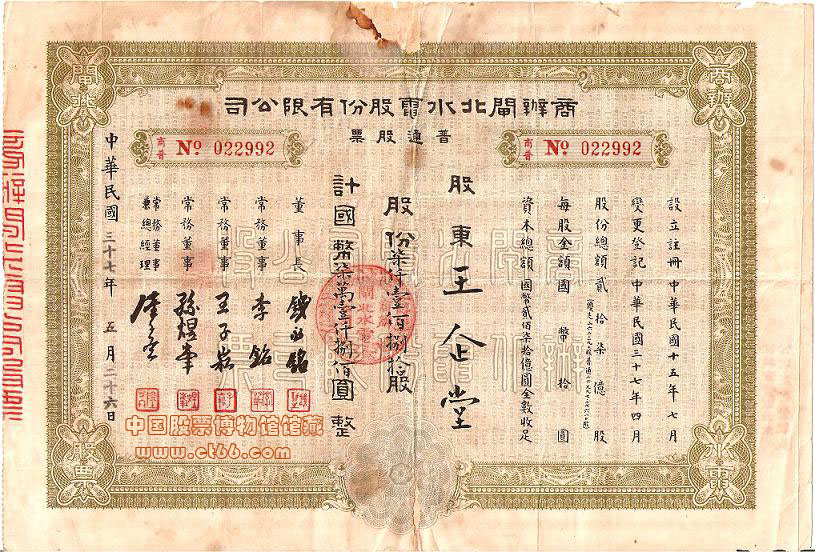 商辦閘北水電股份有限公司
普通股票
商普 № 022992
商普 № 022992
商辦
閘北
水電
股票
設立註冊 中華民國十五年七月
變更登記 中華民國三十七年四月
股份總額貳拾柒億股
每股金額國幣拾圓
資本總額國幣貳佰柒拾億圓全數收足
股東王企堂
股份柒仟壹佰捌拾股
計國幣柒萬壹仟捌佰圓整
董事長
常務董事 李銘
常務董事
常務董事
常務董事兼總經理
中華民國三十七年五月二十六日
中国股票博物馆馆藏
www.ct66.com